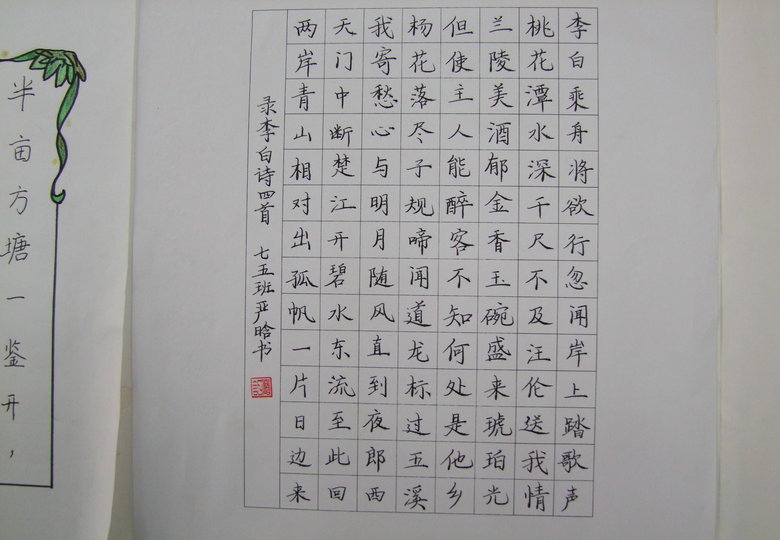 李白乘舟将欲行忽闻岸上踏歌声
桃花潭水深千尺不及汪伦送我情
兰陵美酒郁金香玉碗盛来琥珀光
但使主人能醉客不知何处是他乡
杨花落尽子规啼闻道龙标过五溪
我寄愁心与明月随风直到夜郎西
天门中断楚江开碧水东流至此回
两岸青山相对出孤帆一片日边来
录李白诗四首 七五班严晗书
半亩方塘一鉴开，